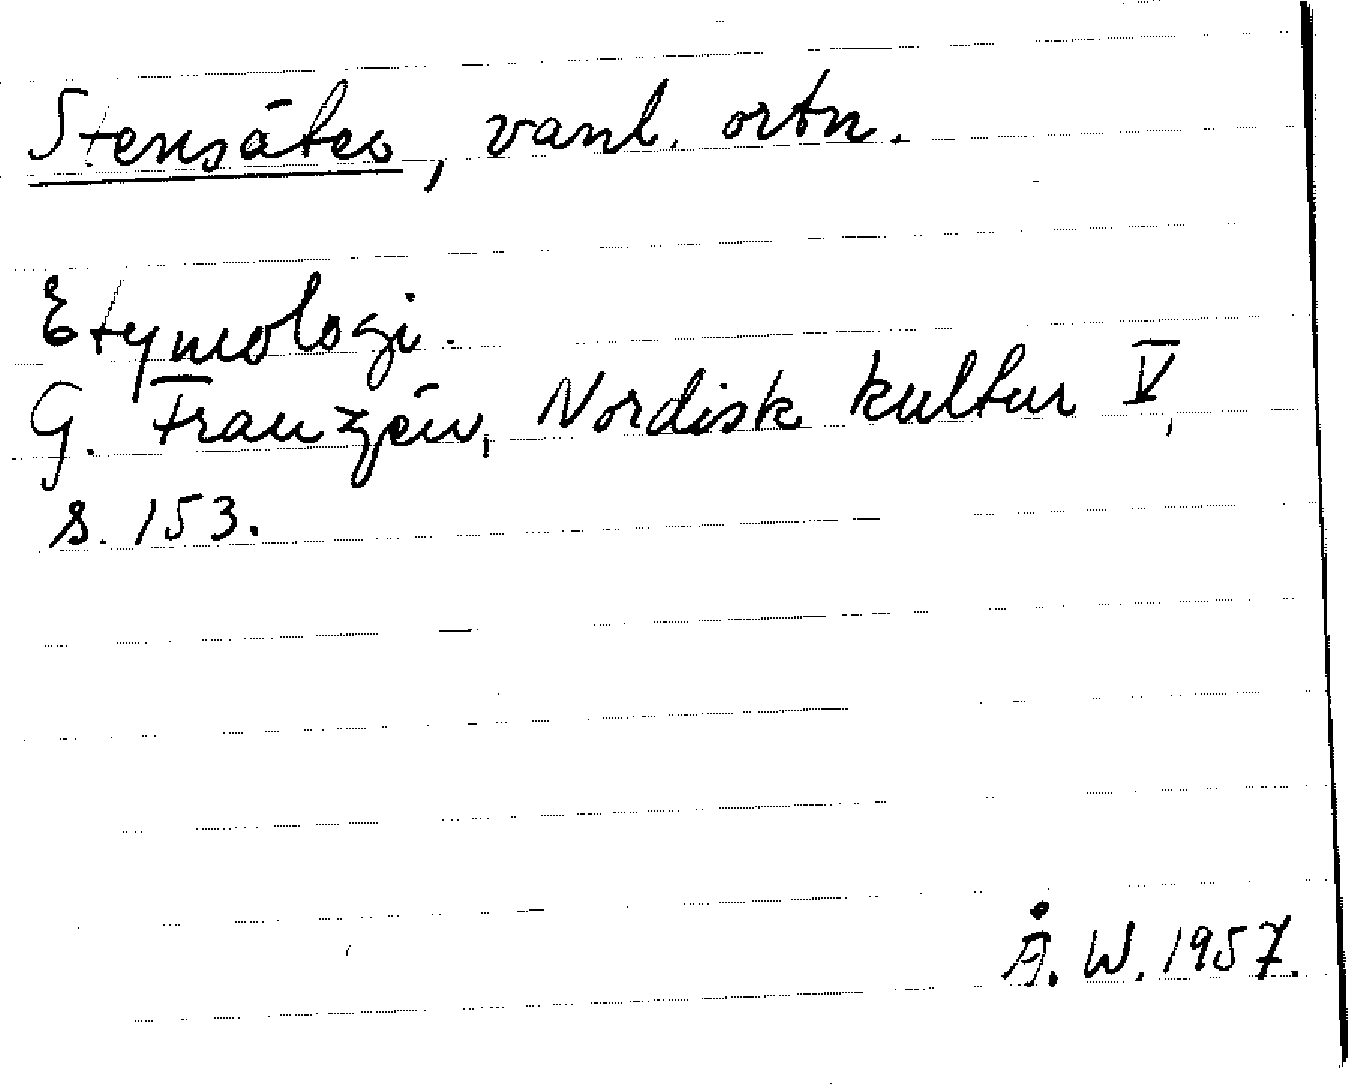 Stensäter, vanl. ortn.
Etymologi.
G. Franzén, Nordisk kultur V,
s. 153.
Å. W. 1957.